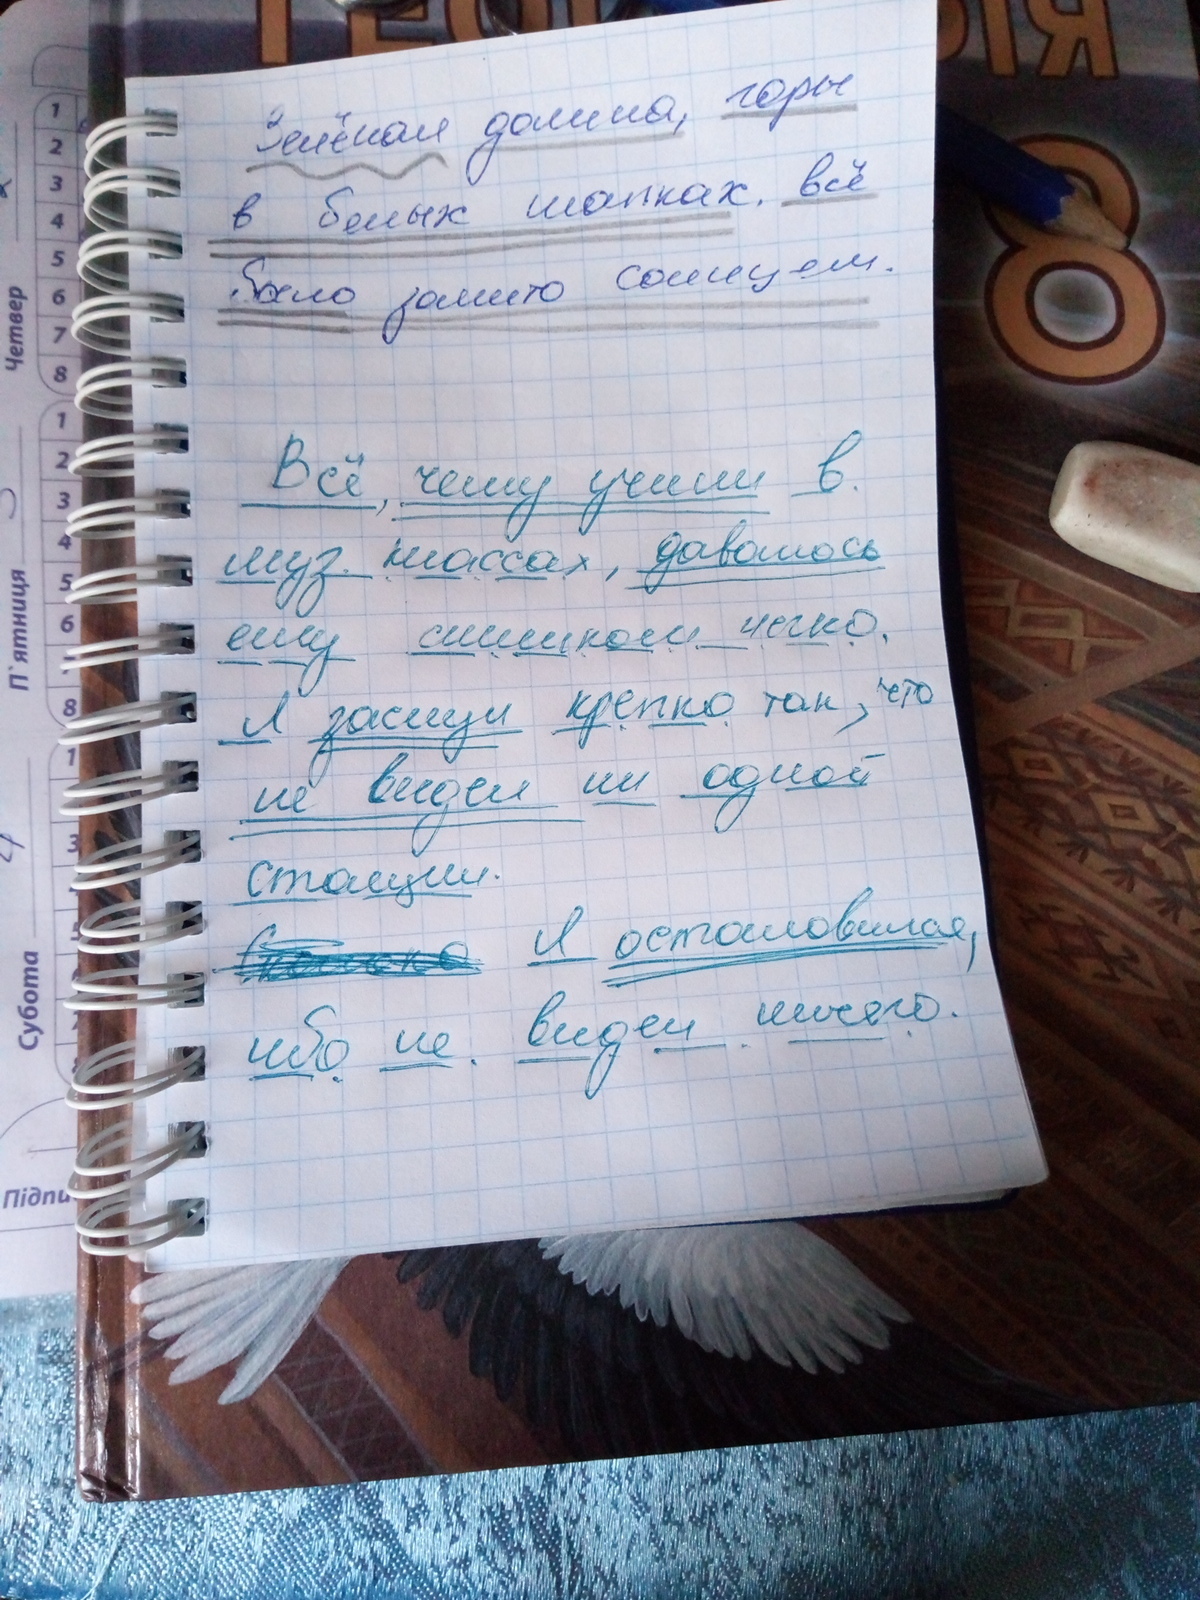 ГЕО
ИЯ
8
Зелёная долина, горы
в белых шапках. всё
было залито солнцем.
Всё, чему учили в
муз. классах, давалось
ему слишком легко.
Я заснул крепко так, что
не видел ни одной
станции.
Я остановился,
ибо не видел ничего.
1
2
3
4
5
6
7
8
Четвер
1
2
3
4
5
6
8
П'ятниця
1
3
Субота
Підпи